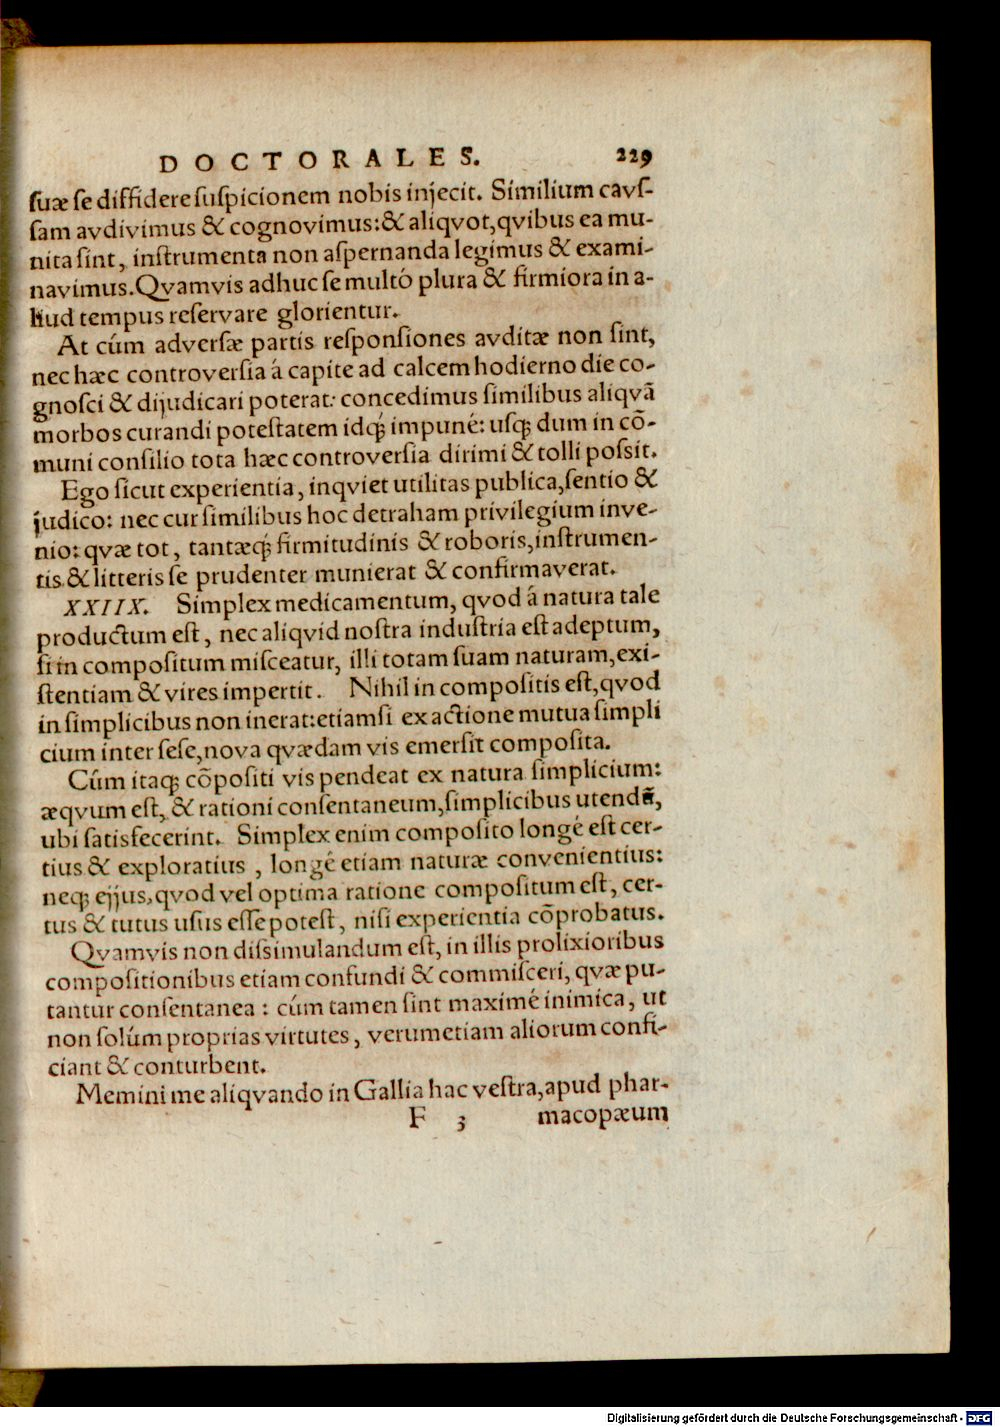 DOCTORALES. 229
ſuæ ſe diffidere ſuſpicionem nobis injecit. Similium cavſ-
ſam avdivimus & cognovimus:& aliqvot,qvibus ea mu-
nita ſint, inſtrumenta non aſpernanda legimus & exami-
navimus.Qvamvis adhuc ſe multó plura & firmiora in a-
liud tempus reſervare glorientur.
At cúm adverſæ partis reſponſiones avditæ non ſint,
nec hæc controverſia á capite ad calcem hodierno die co-
gnoſci & dijudicari poterat: concedimus ſimilibus aliqvā
morbos curandi poteſtatem idq́; impuné: uſq; dum in cō-
muni conſilio tota hæc controverſia dirimi & tolli poſſit.
Ego ſicut experientia, inqviet utilitas publica,ſentio &
judico: nec cur ſimilibus hoc detraham privilegium inve-
nio: qvæ tot, tantæq́; firmitudinis & roboris,inſtrumen-
tis & litteris ſe prudenter munierat & confirmaverat.
XXIIX. Simplex medicamentum, qvod á natura tale
productum eſt, nec aliqvid noſtra induſtria eſt adeptum,
ſi in compoſitum miſceatur, illi totam ſuam naturam,exi-
ſtentiam & vires impertit. Nihil in compoſitis eſt,qvod
in ſimplicibus non inerat:etiamſi ex actione mutua ſimpli
cium inter ſeſe,nova qvædam vis emerſit compoſita.
Cúm itaq; cōpoſiti vis pendeat ex natura ſimplicium:
æqvum eſt, & rationi conſentaneum,ſimplicibus utendū,
ubi ſatisfecerint. Simplex enim compoſito longé eſt cer-
tius & exploratius, longé etiam naturæ convenientius:
neq; ejjus,qvod vel optima ratione compoſitum eſt, cer-
tus & tutus uſus eſſe poteſt, niſi experientia cōprobatus.
Qvamvis non diſsimulandum eſt, in illis prolixioribus
compoſitionibus etiam confundi & commiſceri, qvæ pu-
tantur conſentanea: cúm tamen ſint maximé inimica, ut
non ſolúm proprias virtutes, verumetiam aliorum confi-
ciant & conturbent.
Memini me aliqvando in Gallia hac veſtra,apud phar-
F 3 macopæum
Digitalisierung gefördert durch die Deutsche Forschungsgemeinschaft - DFG